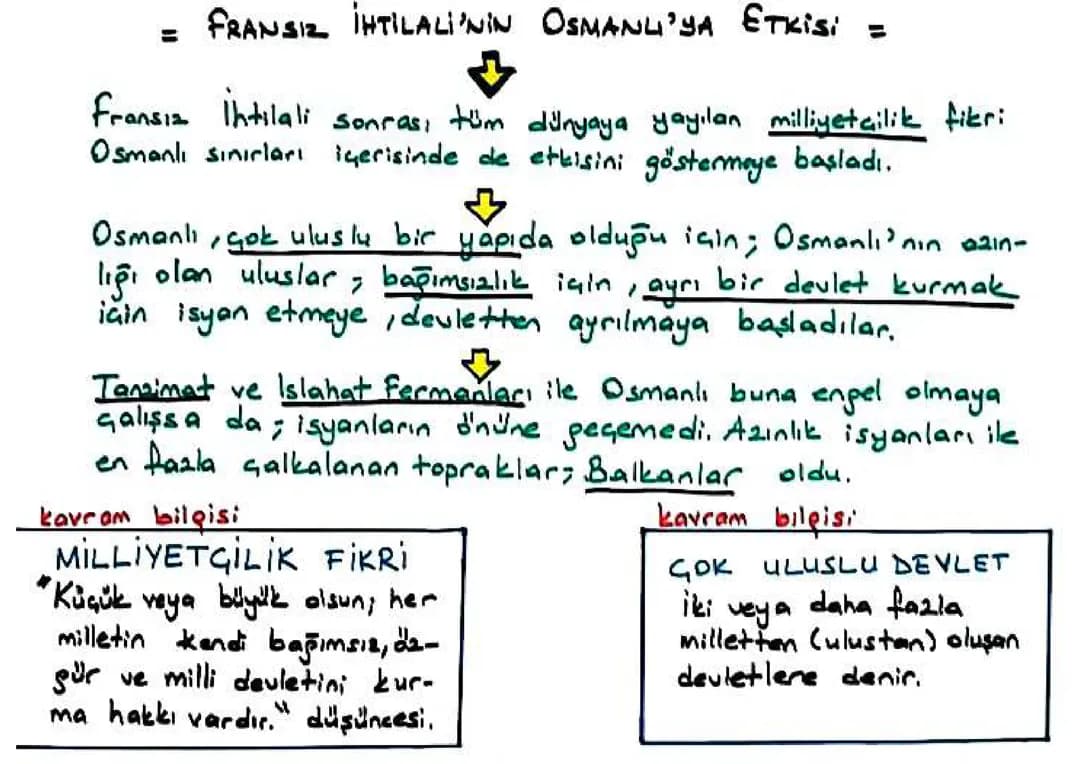 = FRANSIZ İHTİLALİ'NİN OSMANLI'YA ETKİSİ =
Fransız İhtilali sonrası tüm dünyaya yayılan milliyetçilik fikri
Osmanlı sınırları içerisinde de etkisini göstermeye başladı.
Osmanlı, çok uluslu bir yapıda olduğu için; Osmanlı'nın azın-
lığı olan uluslar; bağımsızlık için, ayrı bir devlet kurmak
için isyan etmeye, devletten ayrılmaya başladılar.
Tanzimat ve Islahat Fermanları ile Osmanlı buna engel olmaya
çalışsa da; isyanların önüne geçemedi. Azınlık isyanları ile
en fazla çalkalanan topraklar; Balkanlar oldu.
kavram bilgisi
MİLLİYETÇİLİK FİKRİ
"Küçük veya büyük olsun; her
milletin kendi bağımsız, öz-
gür ve milli devletini kur-
ma hakkı vardır." düşüncesi.
kavram bilgisi
ÇOK ULUSLU DEVLET
İki veya daha fazla
milletten (ulustan) oluşan
devletlere denir.